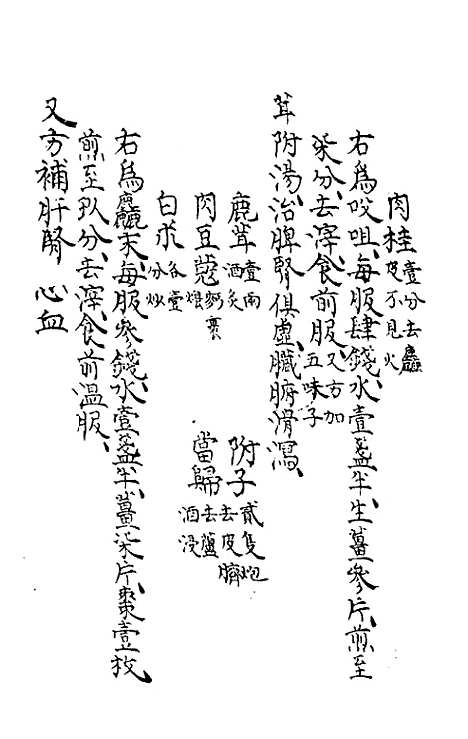 肉桂壹分去麤皮不見火
右爲㕮咀、每服肆錢、水壹盞半、生薑參片、煎至
柒分、去滓、食前服、又方加五味子
茸附湯、治脾腎俱虛、臟腑滑瀉、
鹿茸壹兩酒炙 附子貳隻炮去皮臍
肉豆蔻麪裹煨 當歸去蘆酒浸
白朮各壹分炒
右爲麤末、每服參錢、水壹盞半、薑柒片、棗壹枚
煎至趴分、去滓、食前温服、
又方補肝腎 心血